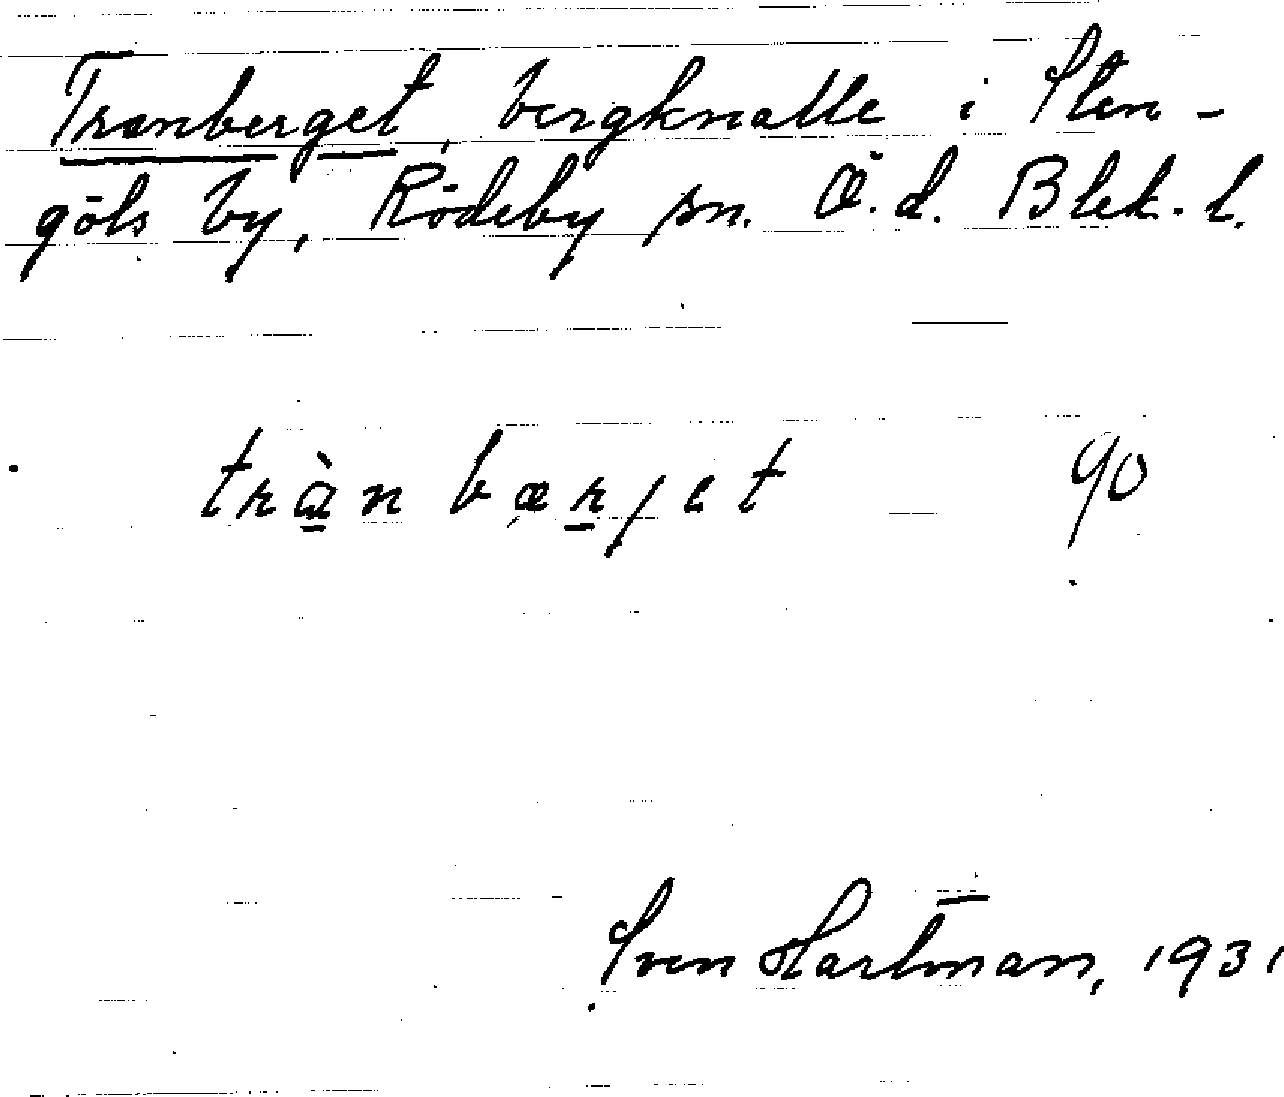 Tranberget, bergknalle i Sten-
göls by, Rödeby sn. Ö. d. Blek. l.
trànbærjet 90
Sven Hartman, 1931